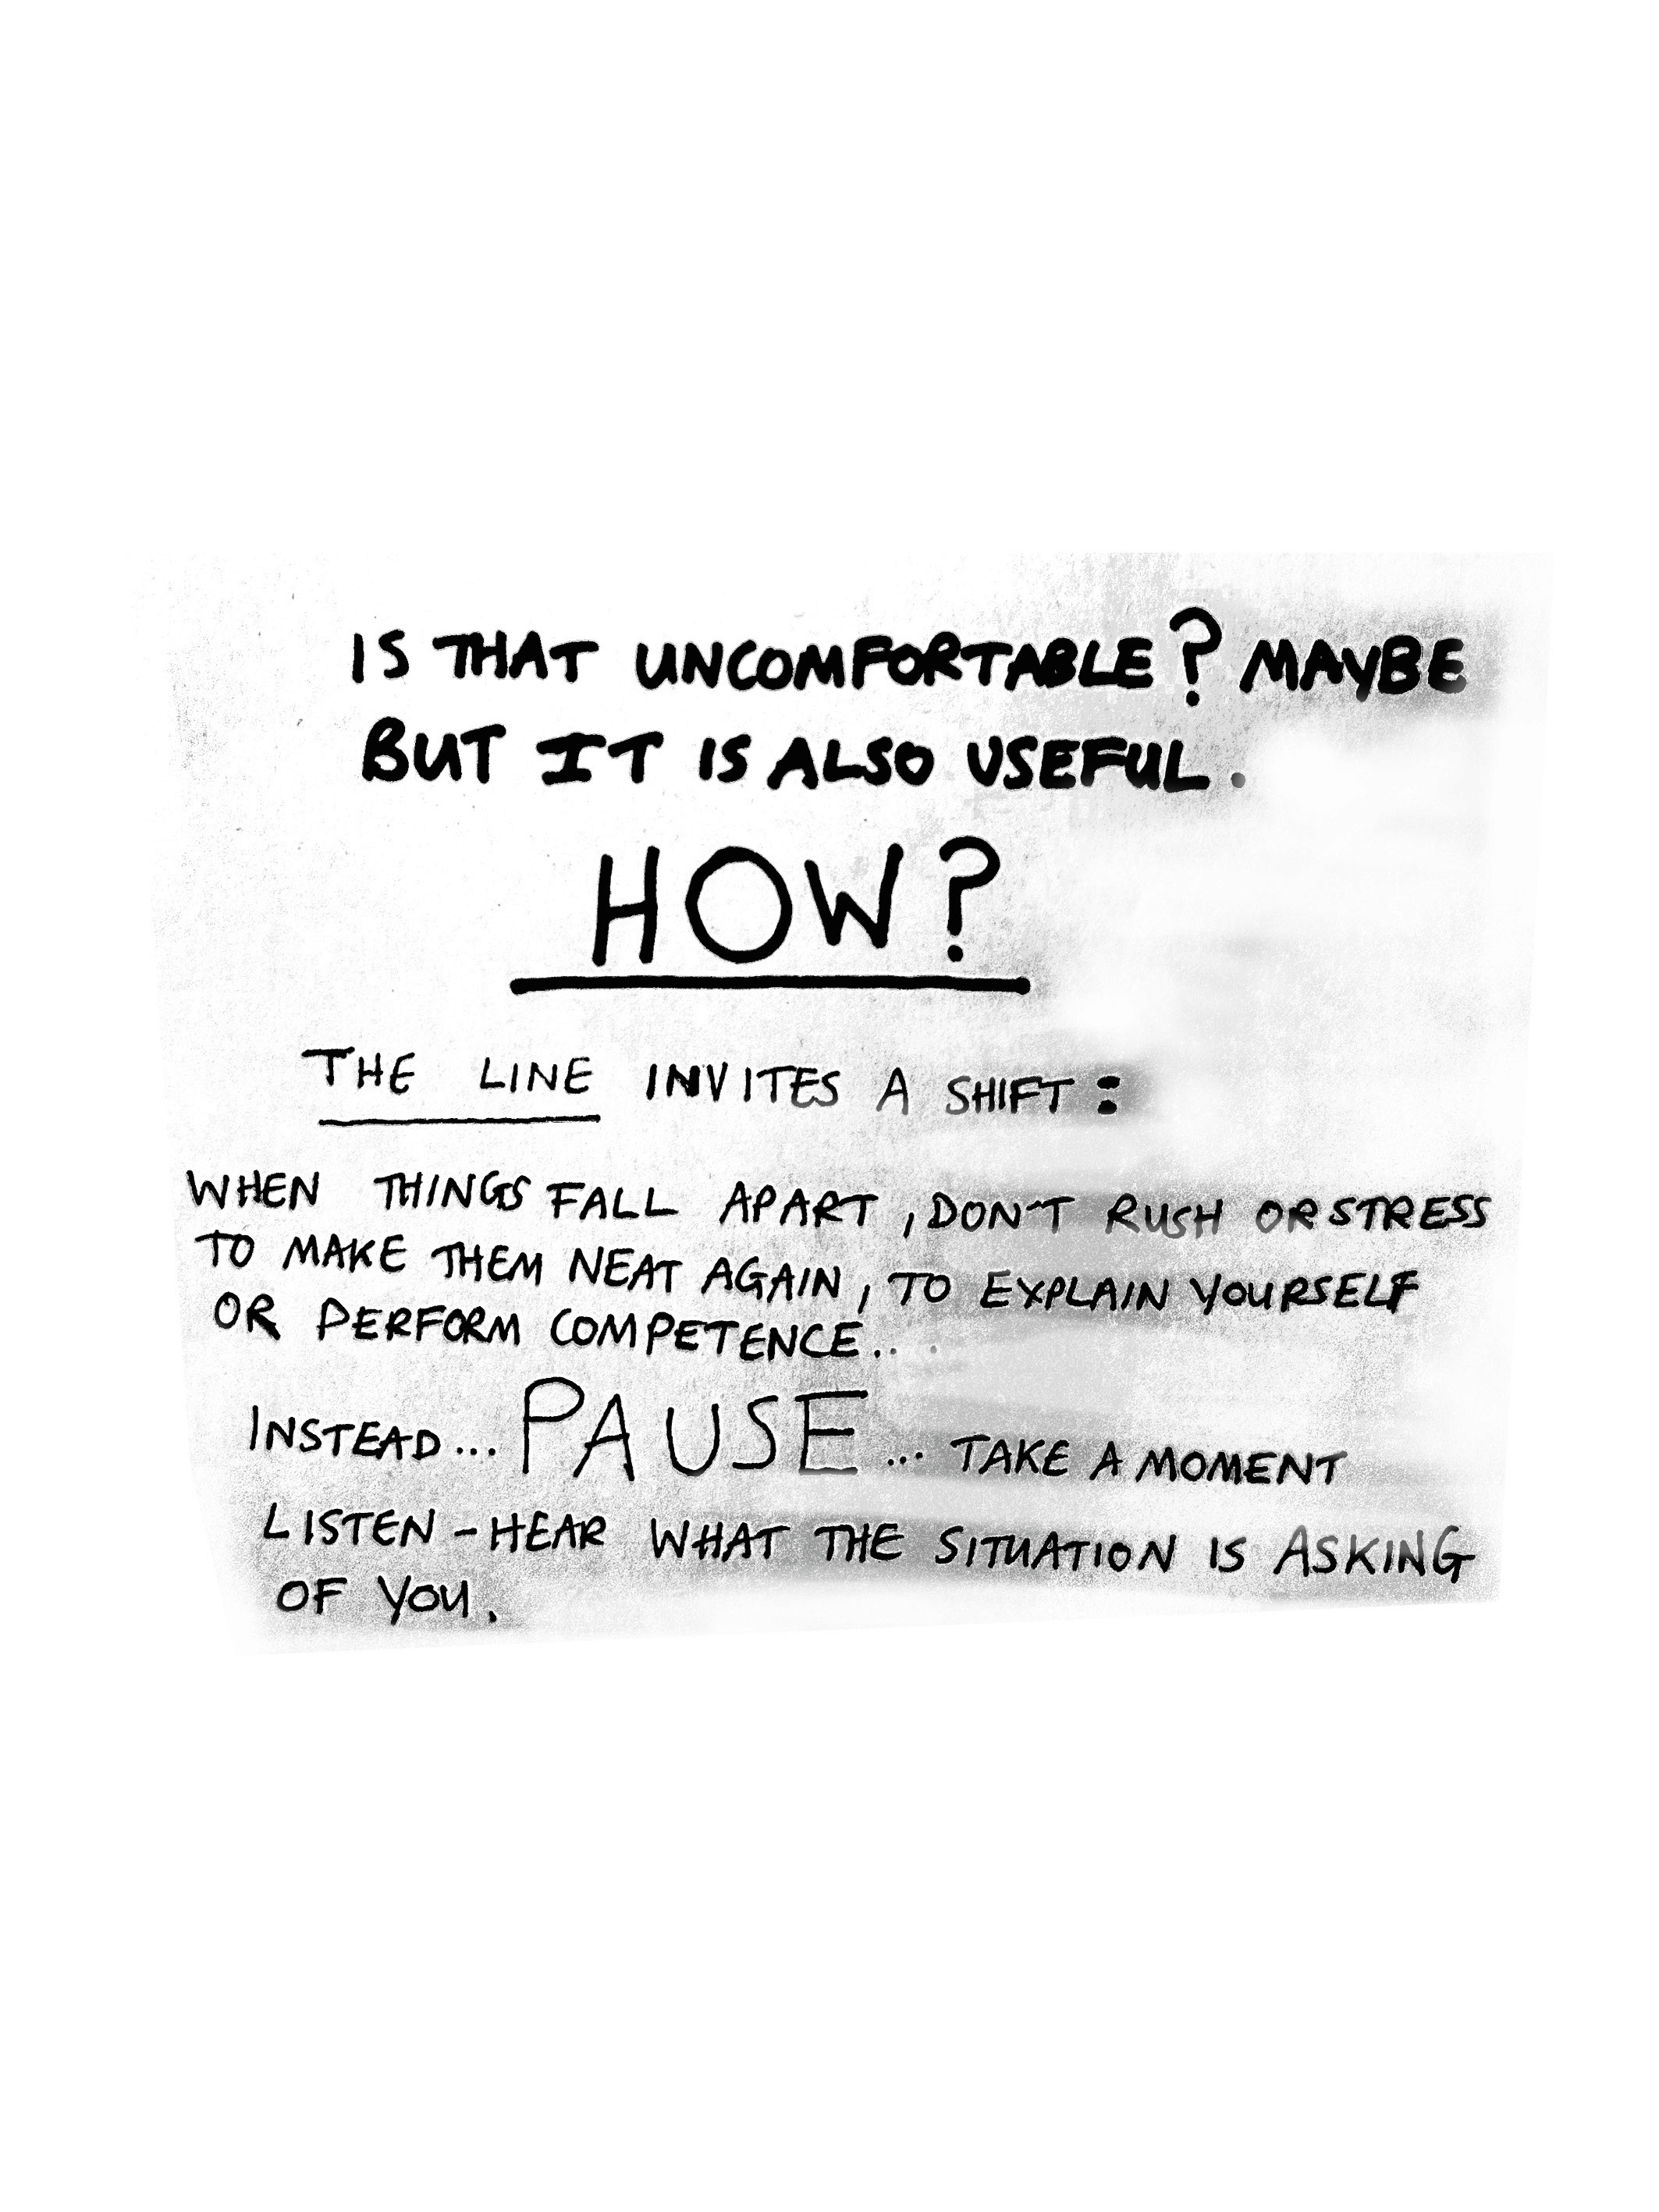 IS THAT UNCOMFORTABLE? MAYBE
BUT IT IS ALSO USEFUL.
HOW?
THE LINE INVITES A SHIFT:
WHEN THINGS FALL APART, DON'T RUSH OR STRESS
TO MAKE THEM NEAT AGAIN, TO EXPLAIN YOURSELF
OR PERFORM COMPETENCE...
INSTEAD... PAUSE... TAKE A MOMENT
LISTEN - HEAR WHAT THE SITUATION IS ASKING
OF YOU.